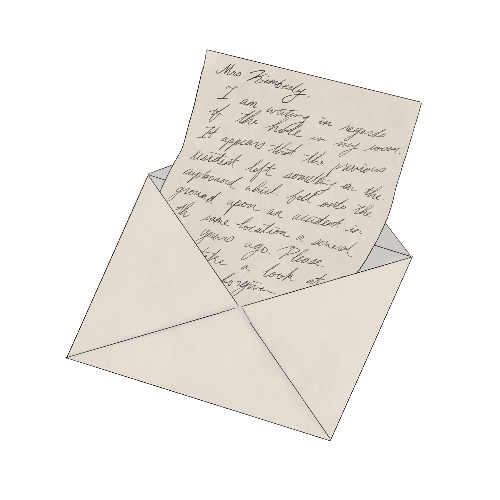 Mrs Kimberly,
I am writing in regards
of the hole in my room.
It appears that the previous
resident left something in the
cupboard which fell onto the
ground upon an accident in
th same location a several
years ago. Please
take a look at